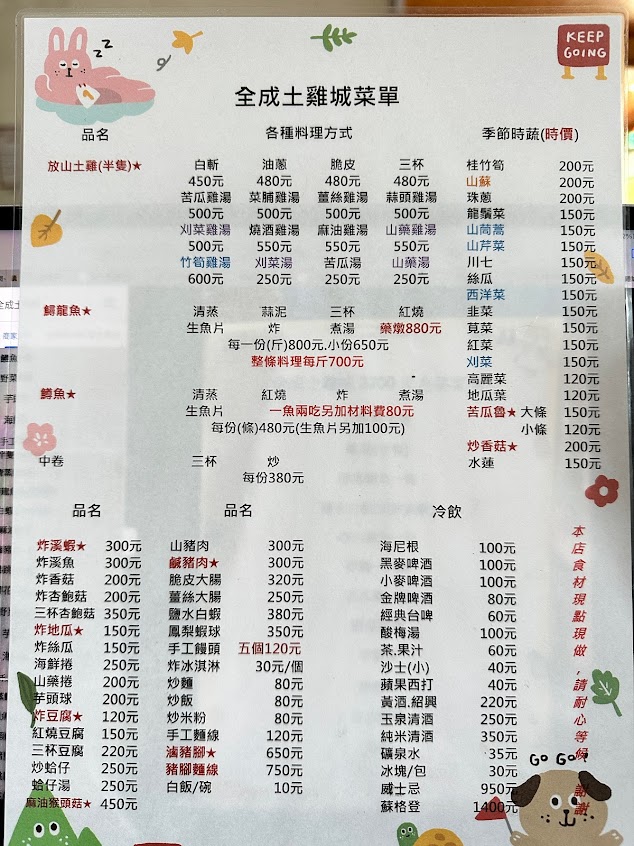 KEEP GOING
全成土雞城菜單
品名 各種料理方式 季節時蔬(時價)
放山土雞(半隻)★ 白斬 油蔥 脆皮 三杯
450元 480元 480元 480元
苦瓜雞湯 菜脯雞湯 薑絲雞湯 蒜頭雞湯
500元 500元 500元 500元
刈菜雞湯 燒酒雞湯 麻油雞湯 山藥雞湯
500元 550元 550元 550元
竹筍雞湯 刈菜湯 苦瓜湯 山藥湯
600元 250元 250元 250元
鱘龍魚★ 清蒸 蒜泥 三杯 紅燒
生魚片 炸 煮湯 藥燉880元
每一份(斤)800元.小份650元
整條料理每斤700元
鱒魚★ 清蒸 紅燒 炸 煮湯
生魚片 一魚兩吃另加材料費80元
每份(條)480元(生魚片另加100元)
中卷 三杯 炒
每份380元
桂竹筍 200元
山蘇 200元
珠蔥 200元
龍鬚菜 150元
山茼蒿 150元
山芹菜 150元
川七 150元
絲瓜 150元
西洋菜 150元
韭菜 150元
莧菜 150元
紅菜 150元
刈菜 150元
高麗菜 120元
地瓜菜 120元
苦瓜魯★ 大條 150元
小條 120元
炒香菇★ 200元
水蓮 150元
品名 品名 冷飲
炸溪蝦★ 300元
炸溪魚 300元
炸香菇 200元
炸杏鮑菇 200元
三杯杏鮑菇 350元
炸地瓜★ 150元
炸絲瓜 150元
海鮮捲 250元
山藥捲 200元
芋頭球 200元
炸豆腐★ 120元
紅燒豆腐 150元
三杯豆腐 220元
炒蛤仔 250元
蛤仔湯 250元
麻油猴頭菇★ 450元
山豬肉 300元
鹹豬肉★ 300元
脆皮大腸 320元
薑絲大腸 250元
鹽水白蝦 380元
鳳梨蝦球 350元
手工饅頭 五個120元
炸冰淇淋 30元/個
炒麵 80元
炒飯 80元
炒米粉 80元
手工麵線 120元
滷豬腳★ 650元
豬腳麵線 750元
白飯/碗 10元
海尼根 100元
黑麥啤酒 100元
小麥啤酒 100元
金牌啤酒 80元
經典台啤 60元
酸梅湯 100元
茶.果汁 60元
沙士(小) 40元
蘋果西打 40元
黃酒.紹興 220元
玉泉清酒 250元
純米清酒 350元
礦泉水 35元
冰塊/包 30元
威士忌 950元
蘇格登 1400元
本店食材現點現做,請耐心等候,謝謝
GO GO!